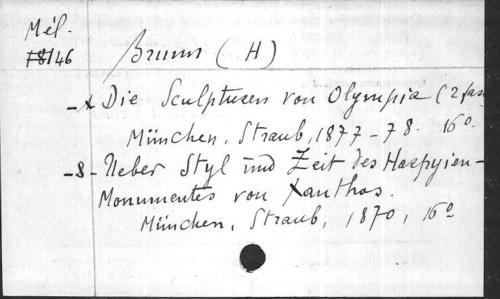 Mél.
78146
Brunn (H)
-x Die Sculpturen von Olympia (2 fas
München, Straub, 1877-78. 16o.
-8- Ueber Styl und Zeit des Harpyien-
Monumentes von Xanthos.
München, Straub, 1870, 16o